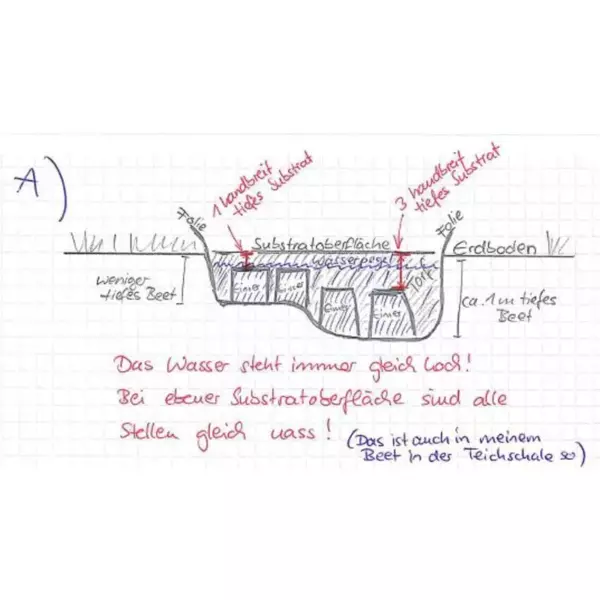 A)
1 handbreit
tiefes Substrat
3 handbreit
tiefes Substrat
Folie
Folie
Substratoberfläche
Erdboden
Wasserpegel
Torf
weniger
tiefes Beet
Eimer
Eimer
Eimer
Eimer
ca. 1m tiefes
Beet
Das Wasser steht immer gleich hoch!
Bei ebener Substratoberfläche sind alle
Stellen gleich nass!
(Das ist auch in meinem
Beet in der Teichschale so)